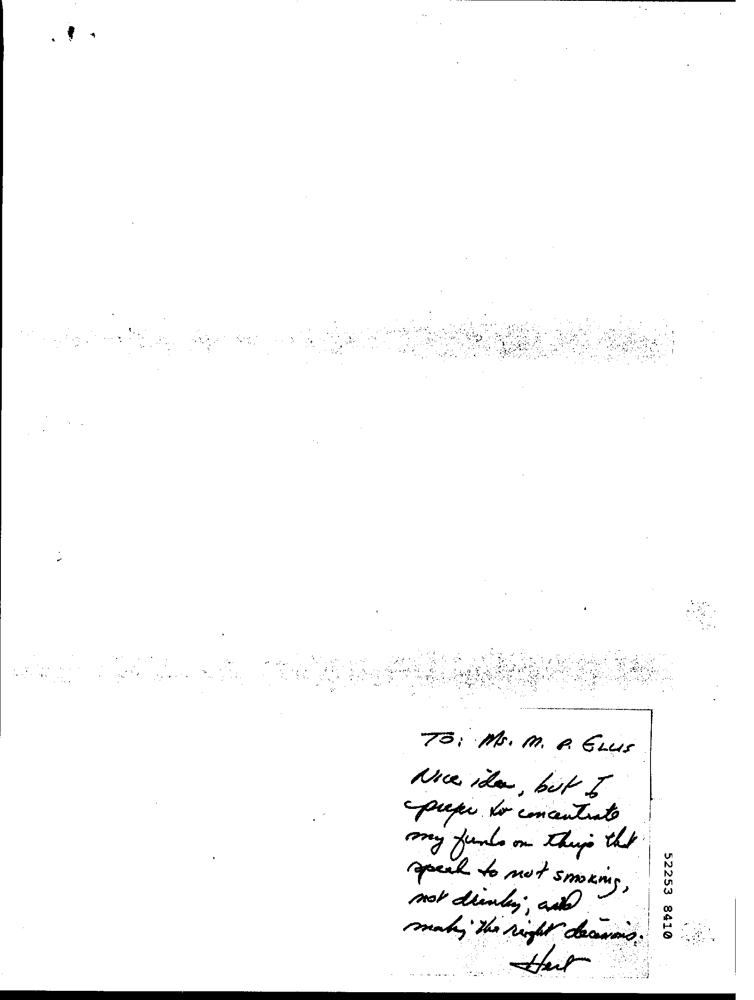 TO: Ms. M. P. ELLIS
Nice idea, but I
prefer to concentrate
my funds on things that
speak to not smoking,
not drinking, and
making the right decisions.
52253 8410